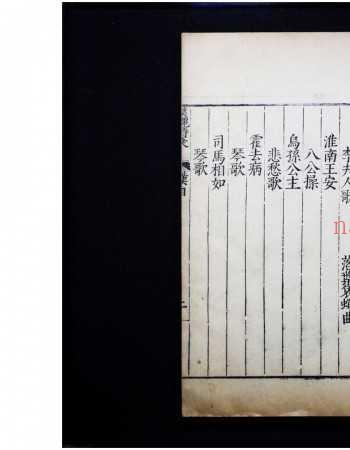 李夫人歌　落葉哀蟬曲
淮南王安
八公操
烏孫公主
悲愁歌
霍去病
琴歌
司馬相如
琴歌